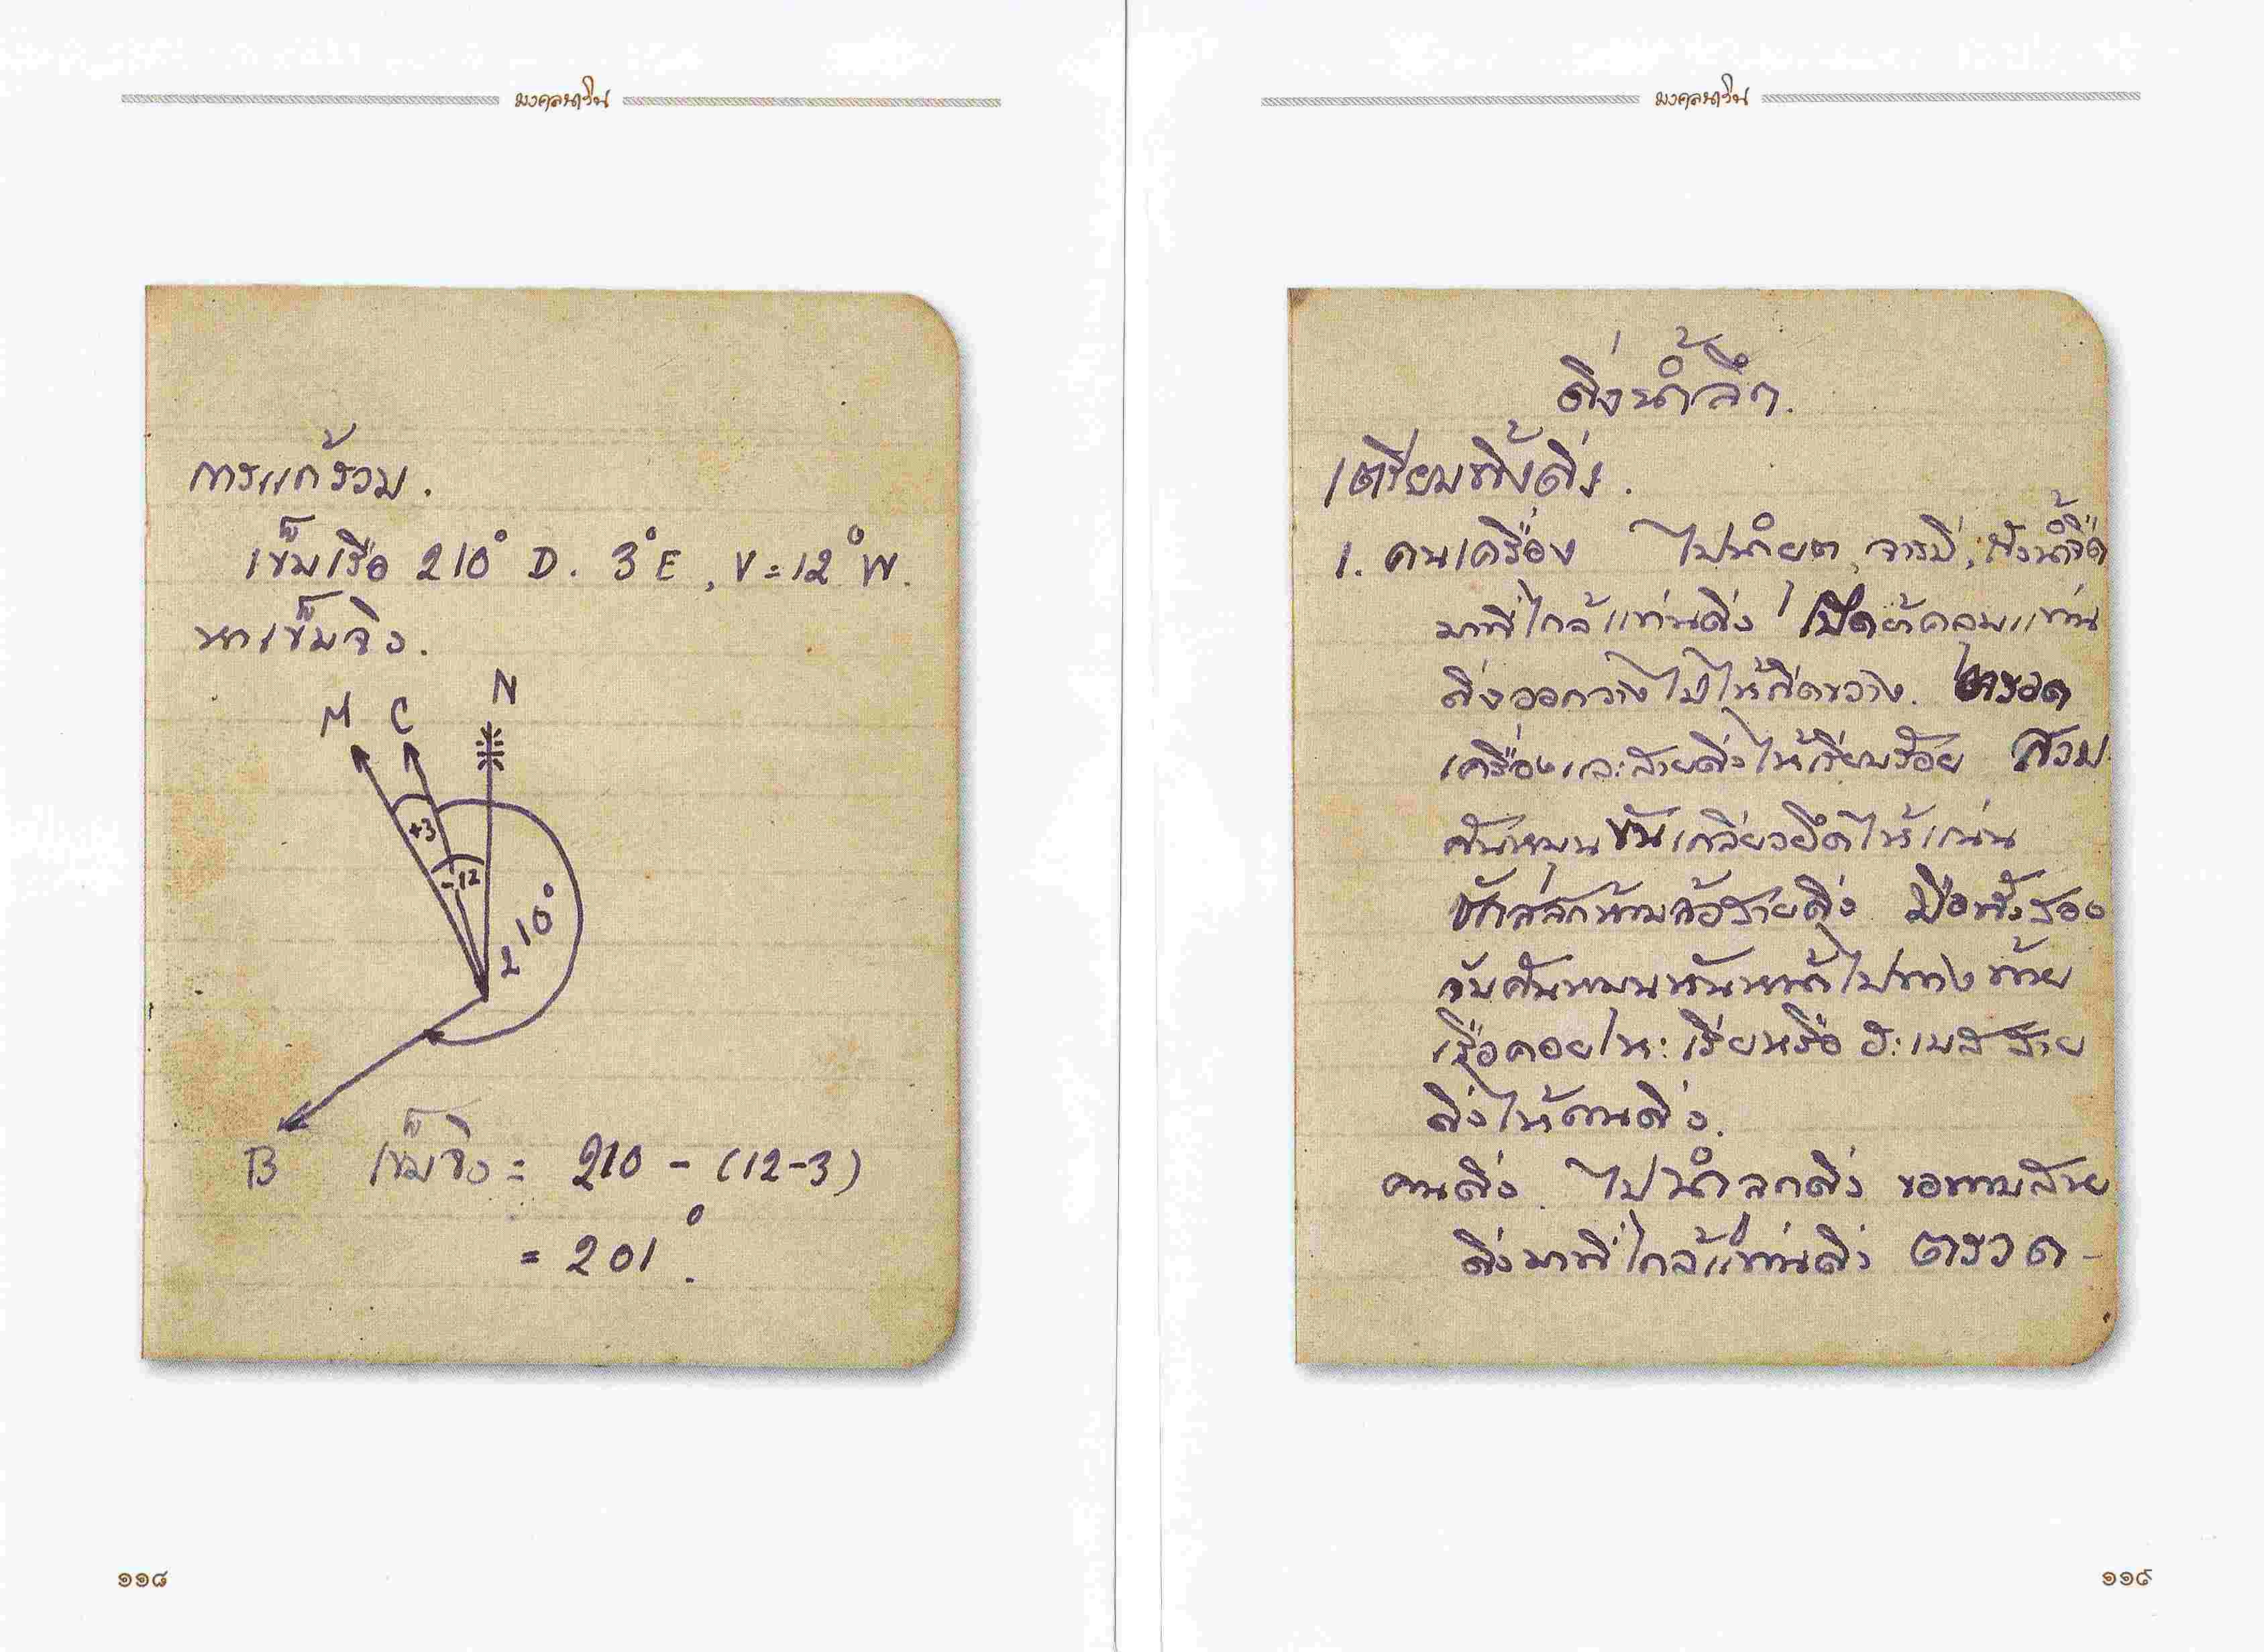 มงคลนาวิน
การแก้รวม.
เข็มเรือ 210° D. 3°E, V = 12°W.
หาเข็มจริง.
M C N
+3
-12
210°
B เข็มจริง = 210 - (12-3)
= 201°.
๑๑๘
มงคลนาวิน
ดิ่งน้ำลึก.
เตรียมทิ้งดิ่ง.
1. คนเครื่อง ไปนำ จารบี, ถังน้ำจืด
มาที่ใกล้แท่นดิ่ง เปิดผ้าคลุมแท่น
ดิ่งออกวางไปให้กีดขวาง. ตรวจ
เครื่องและสายดิ่งให้เรียบร้อย สวม
คันหมุน ขันเกลียวยึดให้แน่น
ชักสลักห้ามล้อสายดิ่ง มือทั้งสอง
จับคันหมุนหันหน้าไปทางท้าย
เรือคอย หะเรียหรือ หะเบสสาย
ดิ่งให้คนดิ่ง.
คนดิ่ง ไปนำลูกดิ่ง ขอทาบสาย
ดิ่งมาที่ใกล้แท่นดิ่ง ตรวจ-
๑๑๙